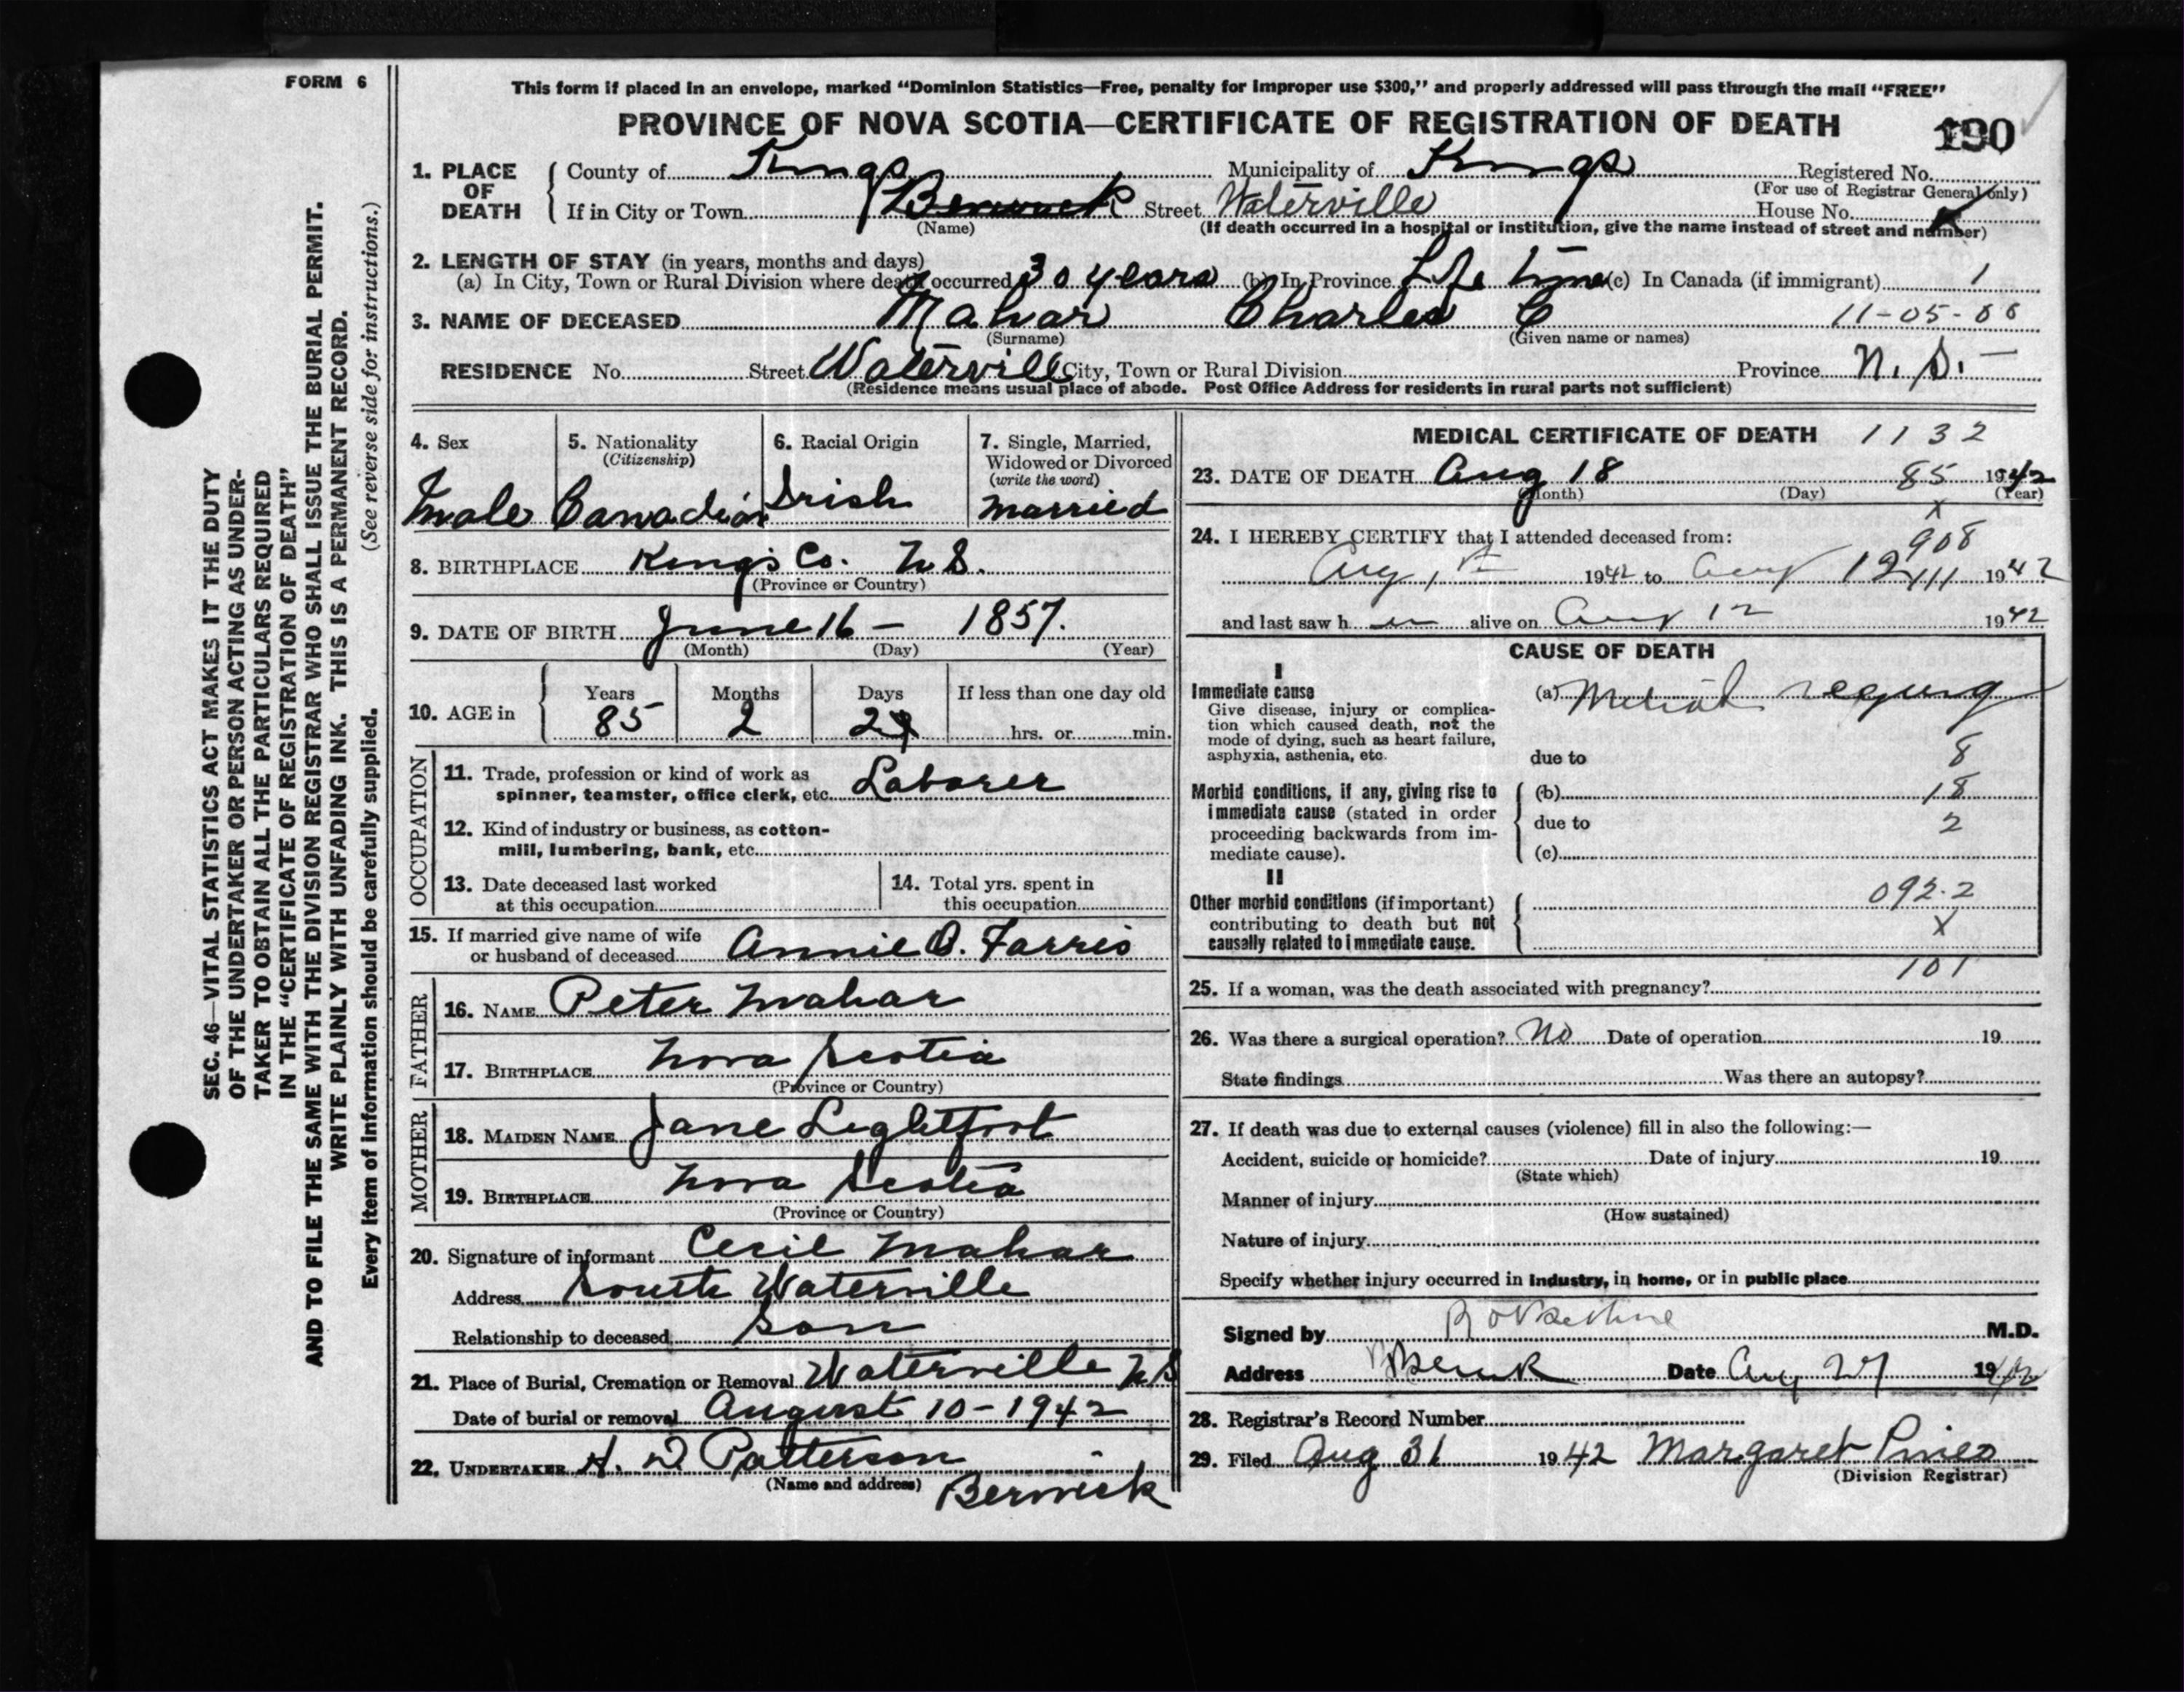 FORM 6
This form if placed in an envelope, marked "Dominion Statistics—Free, penalty for improper use $300," and properly addressed will pass through the mail "FREE"
PROVINCE OF NOVA SCOTIA—CERTIFICATE OF REGISTRATION OF DEATH
190
SEC. 46—VITAL STATISTICS ACT MAKES IT THE DUTY
OF THE UNDERTAKER OR PERSON ACTING AS UNDER-
TAKER TO OBTAIN ALL THE PARTICULARS REQUIRED
IN THE "CERTIFICATE OF REGISTRATION OF DEATH"
AND TO FILE THE SAME WITH THE DIVISION REGISTRAR WHO SHALL ISSUE THE BURIAL PERMIT.
WRITE PLAINLY WITH UNFADING INK. THIS IS A PERMANENT RECORD.
Every item of information should be carefully supplied. (See reverse side for instructions.)
1. PLACE OF DEATH
County of Kings Municipality of Kings Registered No.
(For use of Registrar General only)
If in City or Town Berwick Street Waterville House No.
(Name) (If death occurred in a hospital or institution, give the name instead of street and number)
2. LENGTH OF STAY (in years, months and days)
(a) In City, Town or Rural Division where death occurred 30 years (b) In Province Life time (c) In Canada (if immigrant) 1
3. NAME OF DECEASED Mahar Charles C 11-05-
(Surname) (Given name or names)
RESIDENCE No. Street Waterville City, Town or Rural Division Province N.S.
(Residence means usual place of abode. Post Office Address for residents in rural parts not sufficient)
4. Sex
Male
5. Nationality
(Citizenship)
Canadian
6. Racial Origin
Irish
7. Single, Married,
Widowed or Divorced
(write the word)
Married
8. BIRTHPLACE Kings Co. N.S.
(Province or Country)
9. DATE OF BIRTH June 16 - 1857.
(Month) (Day) (Year)
10. AGE in
Years Months Days If less than one day old
85 2 2 hrs. or min.
OCCUPATION
11. Trade, profession or kind of work as
spinner, teamster, office clerk, etc. Laborer
12. Kind of industry or business, as cotton-
mill, lumbering, bank, etc.
13. Date deceased last worked
at this occupation
14. Total yrs. spent in
this occupation
15. If married give name of wife
or husband of deceased Annie B. Farris
FATHER
16. NAME Peter Mahar
17. BIRTHPLACE Nova Scotia
(Province or Country)
MOTHER
18. MAIDEN NAME Jane Lightfoot
19. BIRTHPLACE Nova Scotia
(Province or Country)
20. Signature of informant Cecil Mahar
Address South Waterville
Relationship to deceased Son
21. Place of Burial, Cremation or Removal Waterville N.S
Date of burial or removal August 10-1942
22. UNDERTAKER H. D Patterson
(Name and address) Berwick
MEDICAL CERTIFICATE OF DEATH 1132
23. DATE OF DEATH Aug 18 85 1942
(Month) (Day) (Year)
x
24. I HEREBY CERTIFY that I attended deceased from:
908
Aug 1st 1942 to Aug 12 111 1942
and last saw h alive on Aug 12 1942
CAUSE OF DEATH
I
Immediate cause
Give disease, injury or complica-
tion which caused death, not the
mode of dying, such as heart failure,
asphyxia, asthenia, etc.
(a) Mitral regurg
due to 8
Morbid conditions, if any, giving rise to
immediate cause (stated in order
proceeding backwards from im-
mediate cause).
(b) 18
due to 2
(c)
II
Other morbid conditions (if important)
contributing to death but not
causally related to immediate cause.
092.2
X
101
25. If a woman, was the death associated with pregnancy?
26. Was there a surgical operation? No Date of operation 19
State findings Was there an autopsy?
27. If death was due to external causes (violence) fill in also the following:—
Accident, suicide or homicide? Date of injury 19
(State which)
Manner of injury
(How sustained)
Nature of injury
Specify whether injury occurred in industry, in home, or in public place
Signed by M.D.
Address Berwick Date Aug 27 1942
28. Registrar's Record Number
29. Filed Aug 31 1942 Margaret Pineo
(Division Registrar)